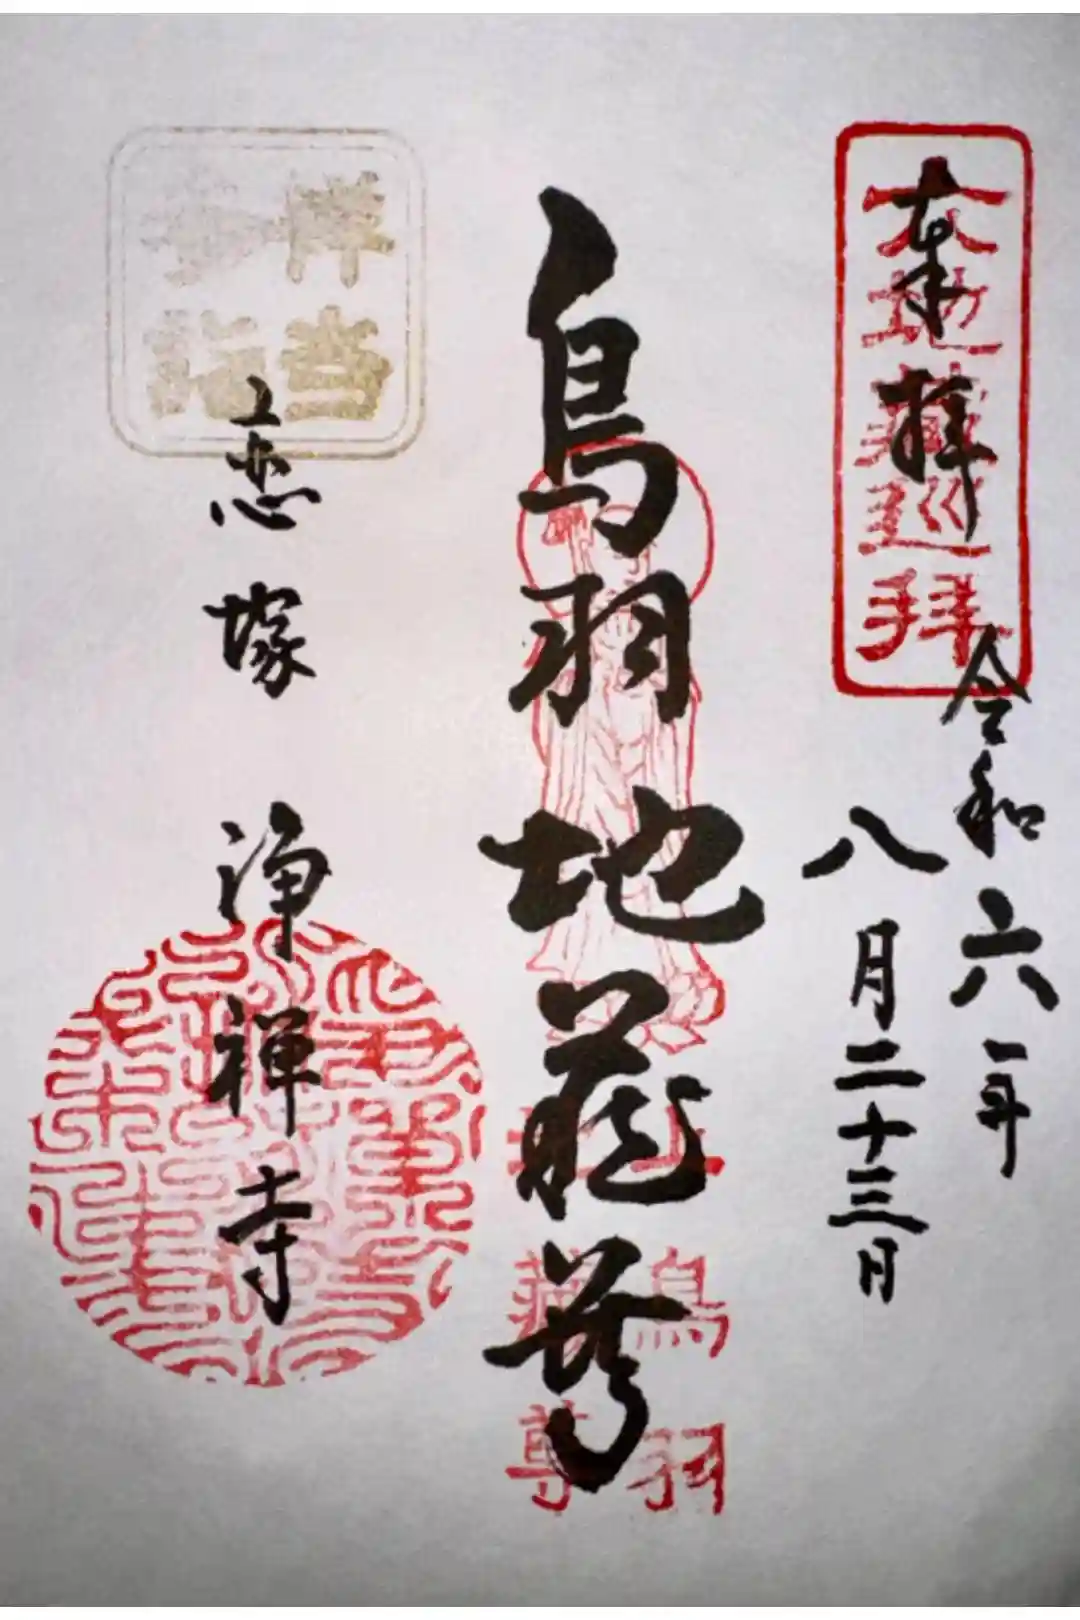 奉拝
六地蔵巡拝
令和六年
八月二十三日
鳥羽地蔵尊
上鳥羽
地蔵尊
恋塚 浄禅寺